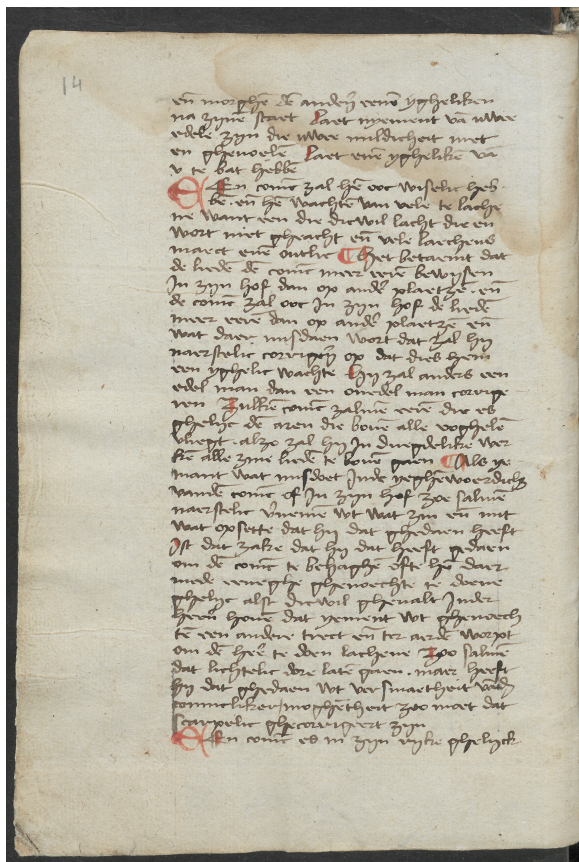 14
en̄ morghē dē anderē eenē yghelikē
na zynē staet Laet nyement vā uwer
edelē zyn die uwer mildicheit niet
en ghevoelē Laet enē yghelikē vā
v te bat hebbē
Een coninc zal hē ooc wiselic heb
bē en̄ hē wachtē van vele te lache
ne want een die dicwil lacht die en
wort niet gheacht en̄ vele lachens
maect enē outlic Het betaemt dat
de liedē dē coninc meer eerē bewysen
In zyn hof dan op ander plaetzē en̄
de coninc zal ooc In zyn hof dē liedē
meer eerē dan op ander plaetze en̄
wat daer misdaen wort dat zal hy
naerstelic corrigerē op dat dies hem
een yghelic wachte Hy zal anders een
edel man dan een onedel man corrige
ren Zulkē coninc zalmē eerē die es
ghelyc dē aren die bouē alle voghelē
vliegt alzo zal hy In duegdelikē wer
kē alle zyne liedē te bouē gaen Als ye
mant wat misdoet Inde yeghēwoerdich
vandē coninc of In zyn hof zoe salmē
naerstelic v̄nemē wt wat zin en̄ mit
wat opsette dat hy dat ghedaen heeft
Ist dat zake dat hy dat heeft gedaen
om dē coninc te behaghē ofte hē daer
mede eeneghe ghenoechte te doene
ghelyc alst dicwil ghevalt Inder
heerē houē dat yement wt ghenoech
tē een andere trect en̄ ter aerdē worpt
om dē heer te doen lachene Zoo salmē
dat lichtelic dore latē gaen maer heeft
hy dat ghedaen wt versmaetheit vād
connicliker moghetheit zoo moet dat
scarpelic ghecorrigeert zyn
Een coninc es in zyn ryke ghelyck